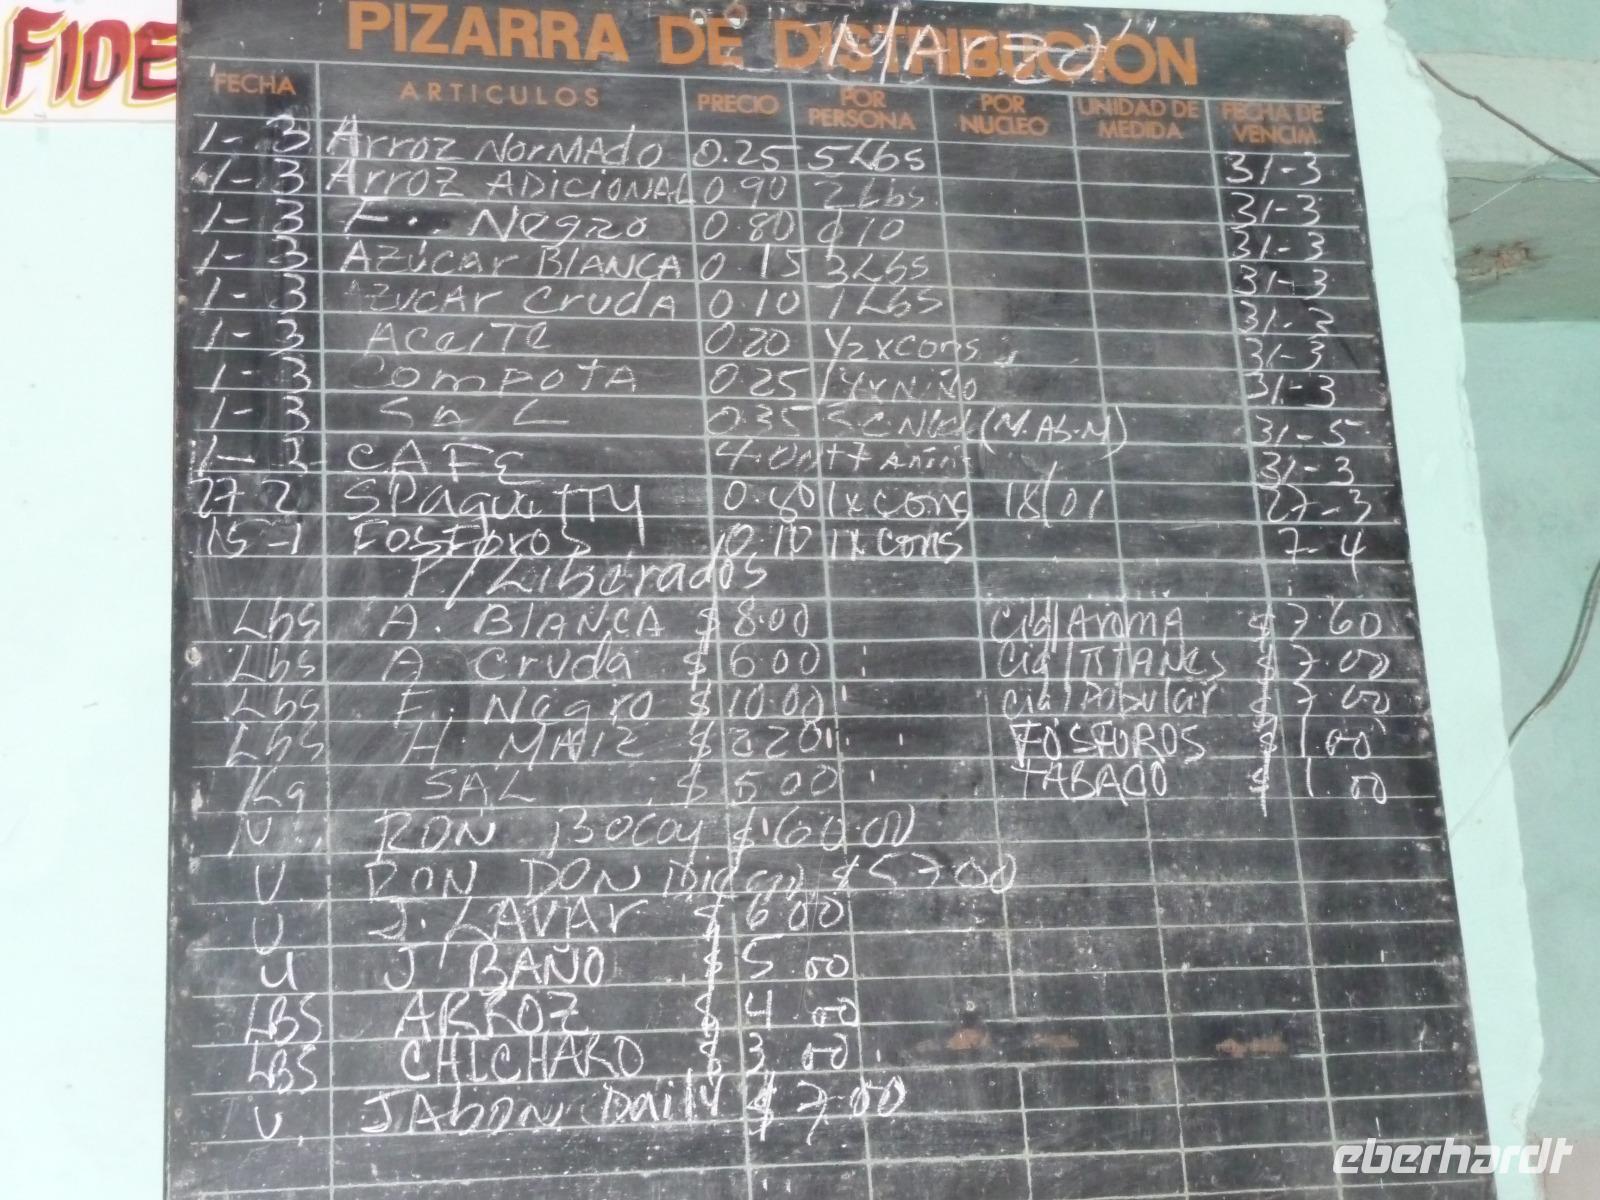 FIDE
PIZARRA DE DISTRIBUCIÓN
FECHA ARTICULOS PRECIO POR PERSONA POR NUCLEO UNIDAD DE MEDIDA FECHA DE VENCIM.
1-3 Arroz NorMAdo 0.25 5Lbs 31-3
1-3 Arroz ADICIONAL 0.90 2Lbs 31-3
1-3 F. Negro 0.80 10 31-3
1-3 AZÚCAr BlANCA 0.15 3Lbs 31-3
1-3 AZUCAr Cruda 0.10 1Lbs 31-3
1-3 Aceite 0.20 1/2xCons 31-3
1-3 Compota 0.25 31-3
1-3 SaL 0.35 31-5
CAFE 4.00 31-3
27-2 SPaguitty 0.80 1xCons 18/01 27-3
15-1 FOSForos 0.10 1xCons 7-4
P/Liberados
Lbs A. BlANCA $8.00 Cig/Aroma $7.60
Lbs A Cruda $6.00 Cig/TITANES $7.00
Lbs F. Negro $10.00 Cig/Popular $7.00
Lbs H. MAIZ $2.20 FÓSFOROS $1.00
Kg SAL $5.00 TABACO $1.00
RON BOCOY $60.00
U RON DON Diego $57.00
U J. LAVAr $6.00
U J BAÑO $5.00
LBS ARROZ $4.00
LBS CHICHARO $3.00
U JAbON Daily $7.00
eberhardt